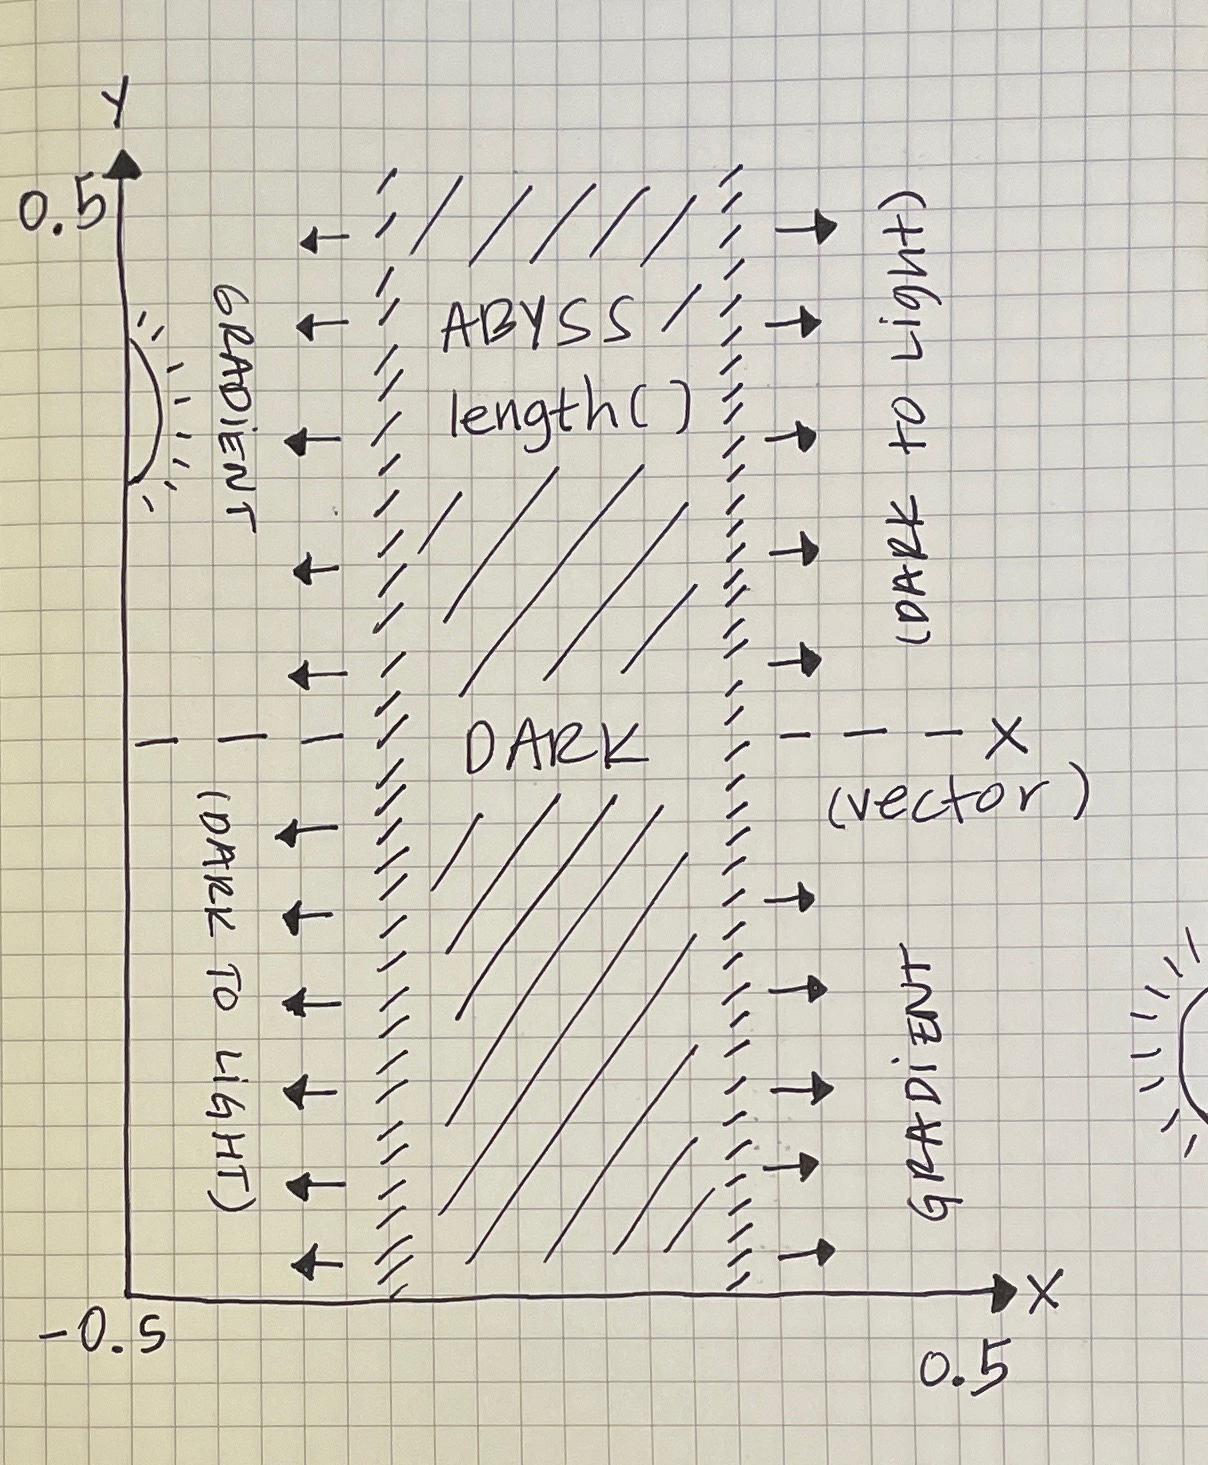 Y
0.5
GRADiENT
(DARK TO LiGHT)
ABYSS
length()
DARK
(DARK TO LiGHt)
X
(vector)
GRADiENT
X
-0.5
0.5